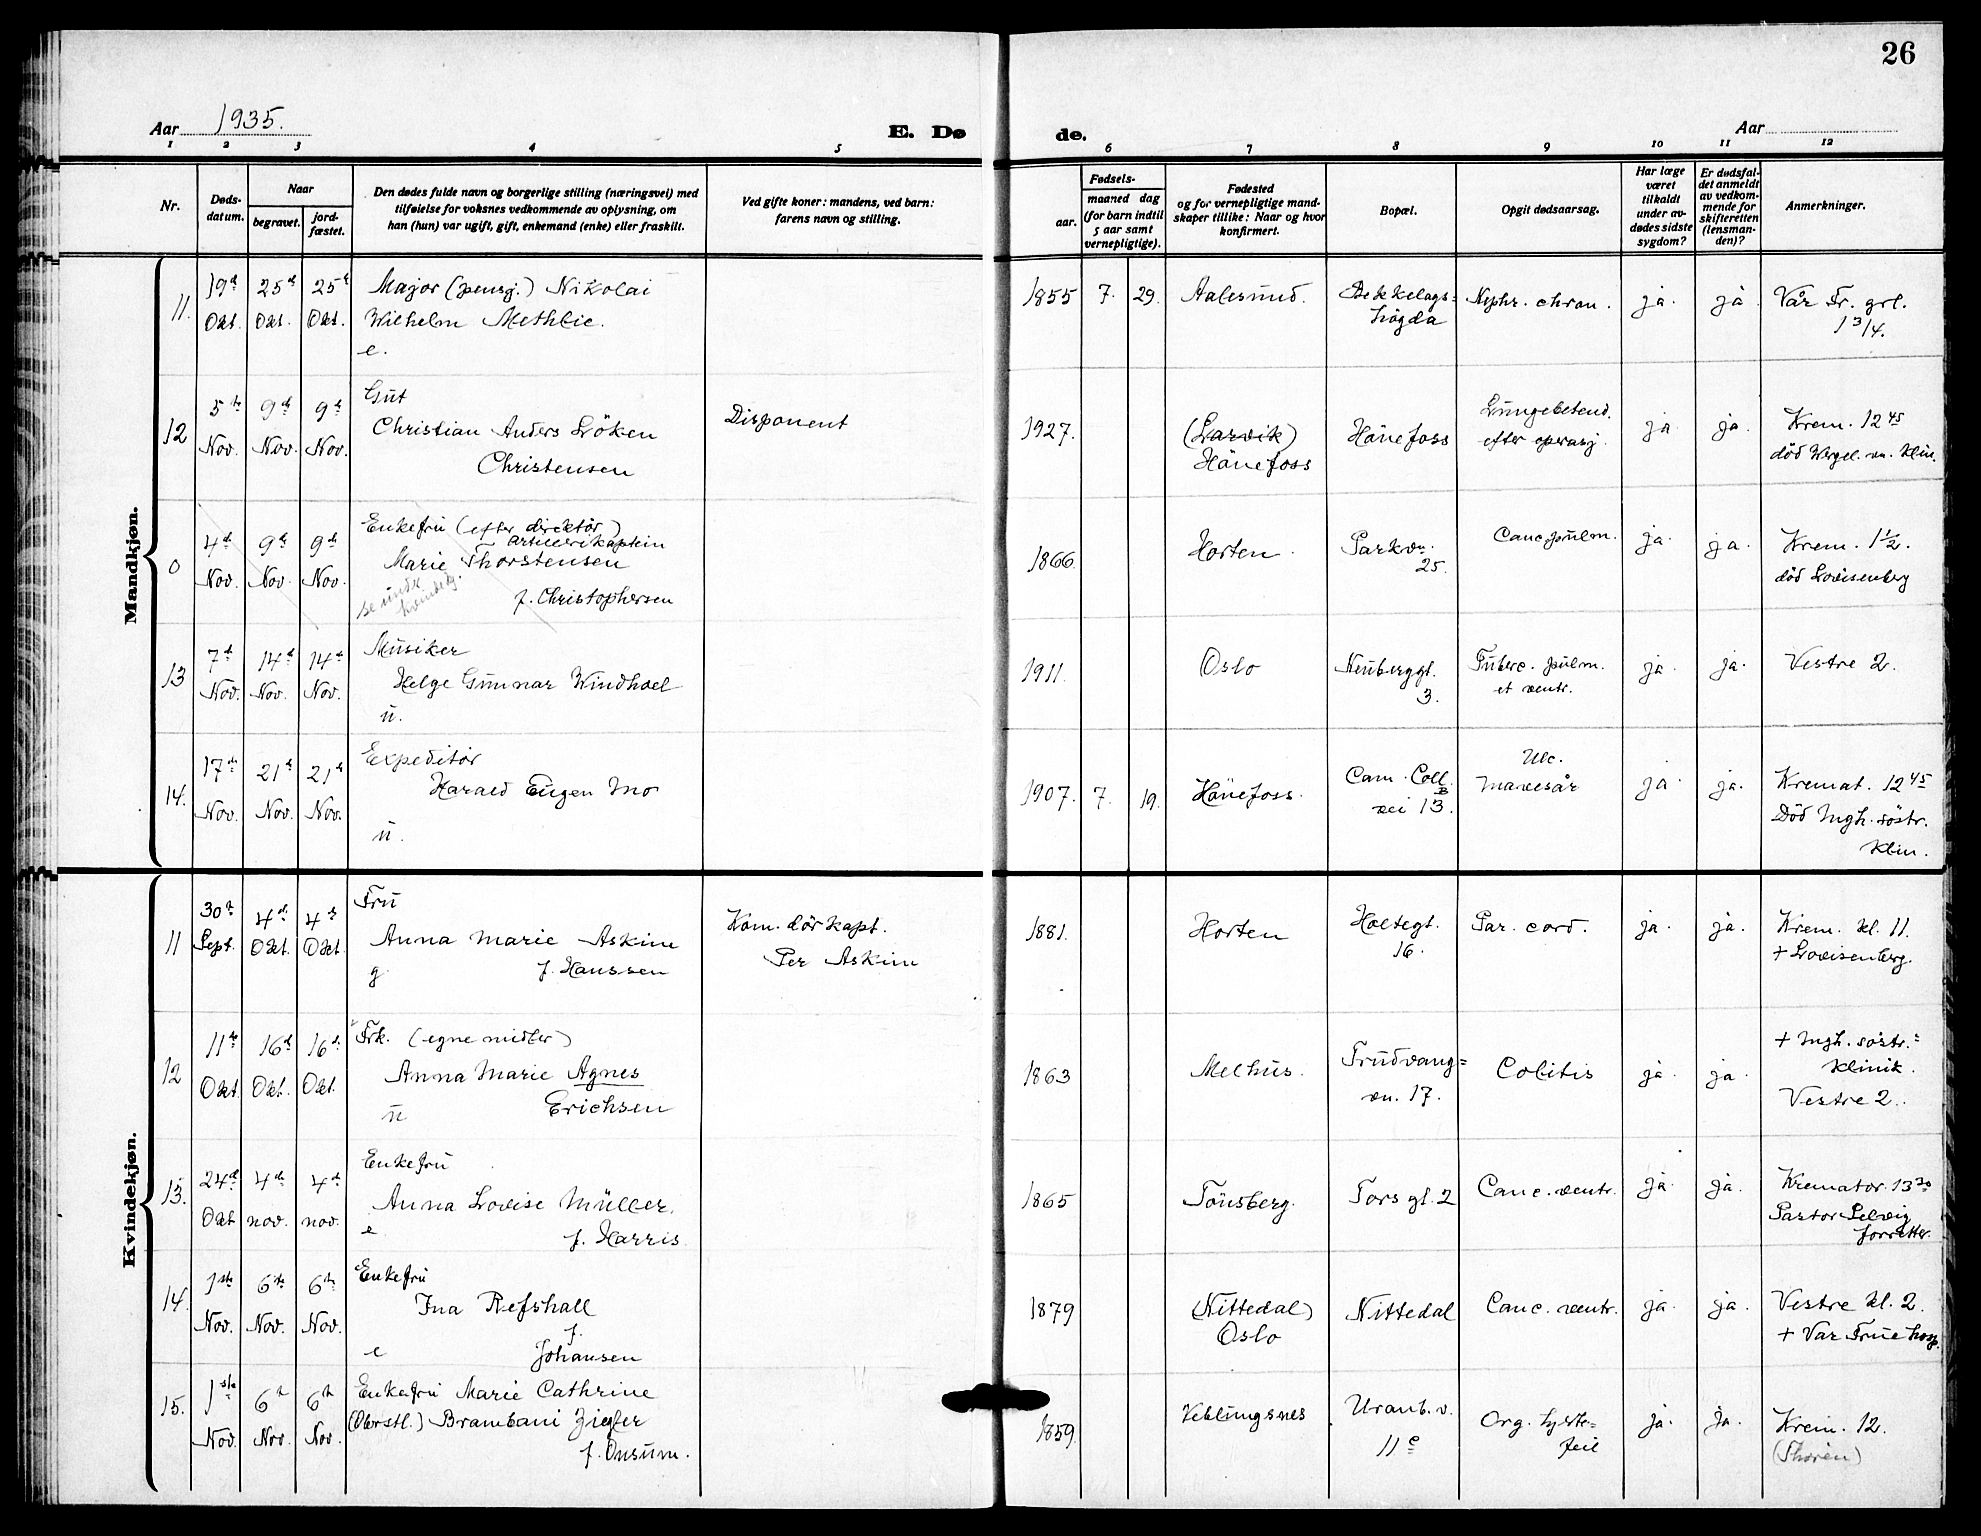 26
Aar 1935.
E. Dø
de.
Aar
1 2 3 4 5 6 7 8 9 10 11 12
Nr.
Døds-
datum.
Naar
begravet.
jord-
fæstet.
Den dødes fulde navn og borgerlige stilling (næringsvei) med
tilføielse for voksnes vedkommende av oplysning, om
han (hun) var ugift, gift, enkemand (enke) eller fraskilt.
Ved gifte koner: mandens, ved barn:
farens navn og stilling.
Fødsels-
aar.
maaned dag
(for barn indtil
5 aar samt
vernepligtige).
Fødested
og for vernepligtige mand-
skaper tillike: Naar og hvor
konfirmert.
Bopæl.
Opgit dødsaarsag.
Har læge
været
tilkaldt
under av-
dødes sidste
sygdom?
Er dødsfal-
det anmeldt
av vedkom-
mende for
skifteretten
(lensman-
den)?
Anmerkninger.
Mandkjøn.
11. 19d Okt. 25d Okt. 25d Okt.
Major (pensj.) Nikolai
Wilhelm Methlie.
e.
1855 7. 29. Aalesund.
Bekkelags-
høgda
Nephr. chron. ja. ja
Vår Fr. grl.
1 3/4.
12 5te Nov. 9d Nov. 9d Nov.
Gut
Christian Anders Löken
Christensen
Disponent
1927.
(Larvik)
Hönefoss
Hönefoss
Lungebetend.
efter operasj.
ja. ja.
Krem. 12 45
död Wergel. vn. Klin.
0 4d Nov. 9d Nov. 9d Nov.
Enkefru (efter direktör)
artillerikaptein
Marie Thorstensen
f. Christophersen
se under
kvindekj.
1866. Horten.
Parkvn.
25.
Canc. pulm. ja. ja.
Krem. 1 1/2.
död Lovisenberg
13 7d Nov. 14d Nov. 14d Nov.
Musiker
Helge Gunnar Windhoel
u.
1911. Oslo
Neuberggt.
3.
Tuberc. pulm.
et ventr.
ja. ja.
Vestre 2.
14. 17d Nov. 21d Nov. 21d Nov.
Expeditör
Harald Eugen Mo
u.
1907. 7. 19. Hönefoss.
Cam. Coll.
vei 13 B.
Ulc.
Mavesår
ja. ja.
Kremat. 12 45
Död Ingh. söstr.
Klin.
Kvindekjøn.
11 30d Sept. 4d Okt. 4d Okt.
Fru
Anna Marie Askim
g. f. Hanssen
Kom. dör kapt.
Per Askim
1881. Horten
Holtegt.
16.
Par. cord. ja. ja.
Krem. kl. 11.
+ Lovisenberg.
12 11te Okt. 16d Okt. 16d Okt.
Frk. (egne midler)
Anna Marie Agnes
u Erichsen
1863 Melhus.
Trudvang-
vn. 17.
Colitis ja. ja.
+ Ingh. söstr.-
klinik.
Vestre 2.
13. 24d Okt 4de nov. 4d nov.
Enkefru
Anna Lovise Müller.
e f. Harris.
1865 Tönsberg. Tors gt. 2 Canc. ventr. ja. ja.
Kremator. 13 30
Pastor Selvig
forretter.
14. 1ste Nov. 6te Nov. 6te Nov.
Enkefru
Ina Refshall
f.
e Johansen
1879
(Nittedal)
Oslo
Nittedal Canc. ventr. ja. ja.
Vestre kl. 2.
+ Vår Frue hosp.
15. 1ste Nov. 6te Nov. 6te Nov.
Enkefru Marie Cathrine
(Oberstl.) Brambani Ziegler
f. Onsum.
1859. Veblungsnes
Uranb. v.
11 c
Org. hjerte-
feil
ja. ja.
Krem. 12.
(Thorén)